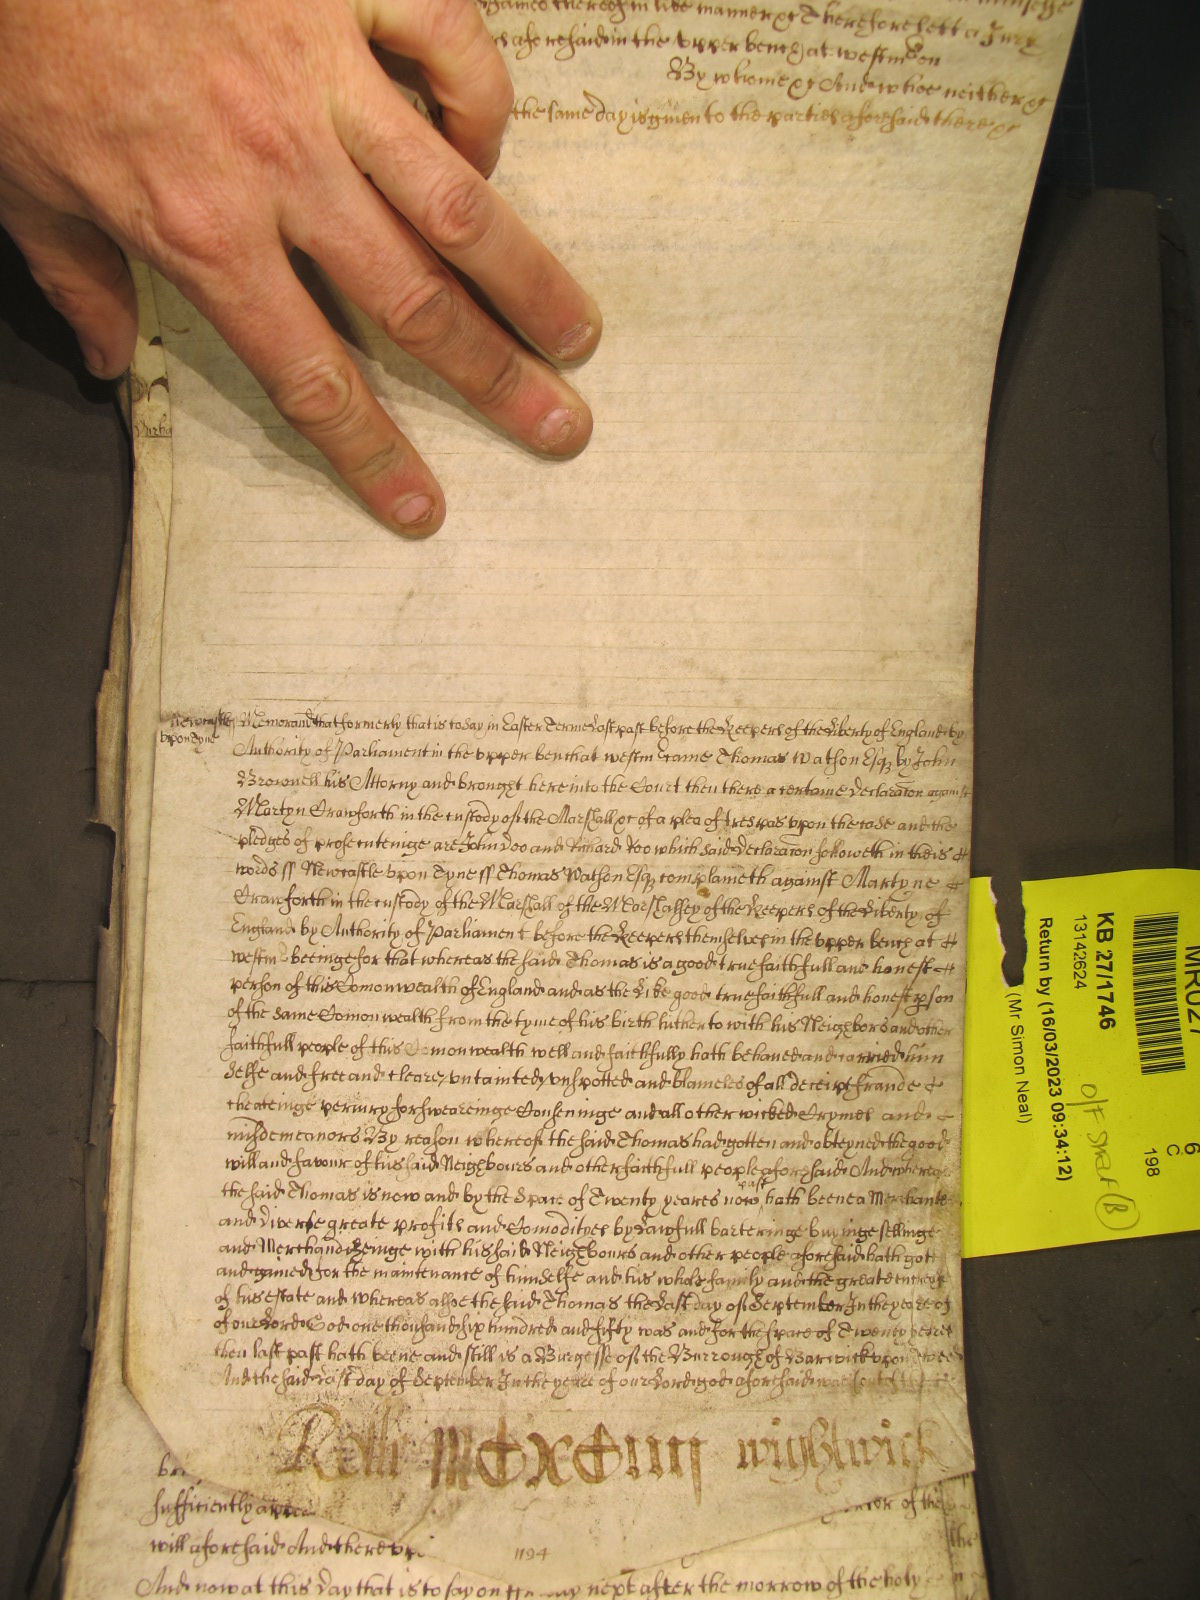 games thereof in like manner &c Therefore lett a Jury
aforesaid in the upper bench at westm on
By whome &c And whoe neither &c
the same day is given to the parties aforesaid there &c
Newcastle
upon Tyne
Memorand that formerly that is to say in Easter Terme last past before the Keepers of the Liberty of England by
Authority of Parliament in the upper bench at westm Came Thomas Watson Esq by John
Brownell his Attorny and brought here into the Court then there a certaine declaracon against
Martyn Crawforth in the custody of the Marshall &c of a plea of trespas upon the case and the
pledges of prosecuteinge are John Doo and Richard Roo which said declaracon followeth in theis
words ss Newcastle upon Tyne ss Thomas Watson Esq complaineth against Martyne
Crawforth in the custody of the Marshall of the Marshalsey of the Keepers of the Liberty of
England by Authority of Parliament before the Keepers themselves in the upper bench at
westm beeinge for that whereas the said Thomas is a good true faithfull and honest
person of this Comonwealth of England and as the like good true faithfull and honest pson
of the same Comonwealth from the tyme of his birth hitherto with his Neighbors and other
faithfull people of this Comonwealth well and faithfully hath behaved and carried him
selfe and free and cleare untainted unspotted and blameles of all deceipt fraude
cheateinge periury forsweareinge Couseninge and all other wicked Crymes and
misdemeanors By reason whereof the said Thomas had gotten and obteyned the good
will and favour of his said Neighbours and other faithfull people aforesaid And whereas
the said Thomas is now and by the Space of Twenty yeares now past hath beene a Merchante
and diverse greate profitts and Comodityes by Lawfull barteringe buyinge sellinge
and Merchandizeinge with his said Neighbours and other people aforesaid hath got
and gained for the maintenance of himselfe and his whole family and the great encrease
of his estate and whereas alsoe the said Thomas the Last day of September In the yeare of
of our Lord God one thousand six hundred and fifty was and for the space of Twenty yeres
then last past hath beene and still is a Burgesse of the Burrough of Barwick upon Tweed
And the said Last day of September In the yeare of our Lord god aforesaid was
Rolle wightwick
sufficiently
of the
will aforesaid And thereupon
1194
And now at this day that is to say on next after the morrow of the holy
MR027
KB 27/1746
13142624
Return by (16/03/2023 09:34:12)
(Mr Simon Neal)
6
C
198